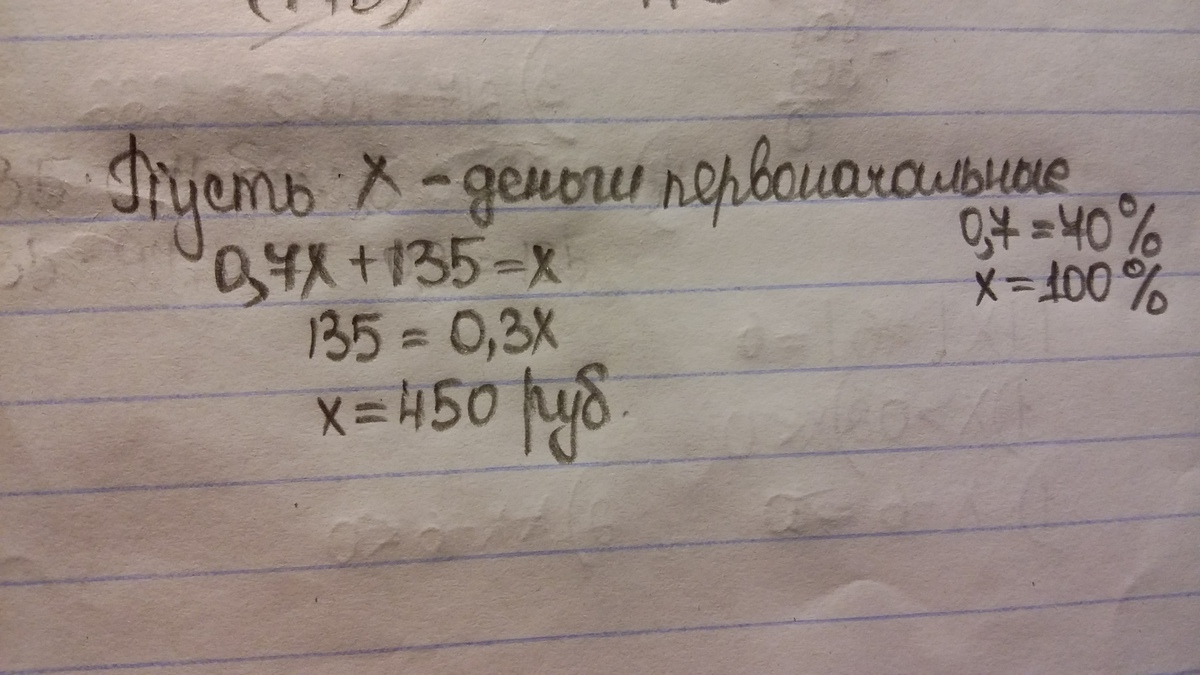 Пусть x - деньги первоначальные
0,7x + 135 = x
0,7 = 70%
x = 100%
135 = 0,3x
x = 450 руб.